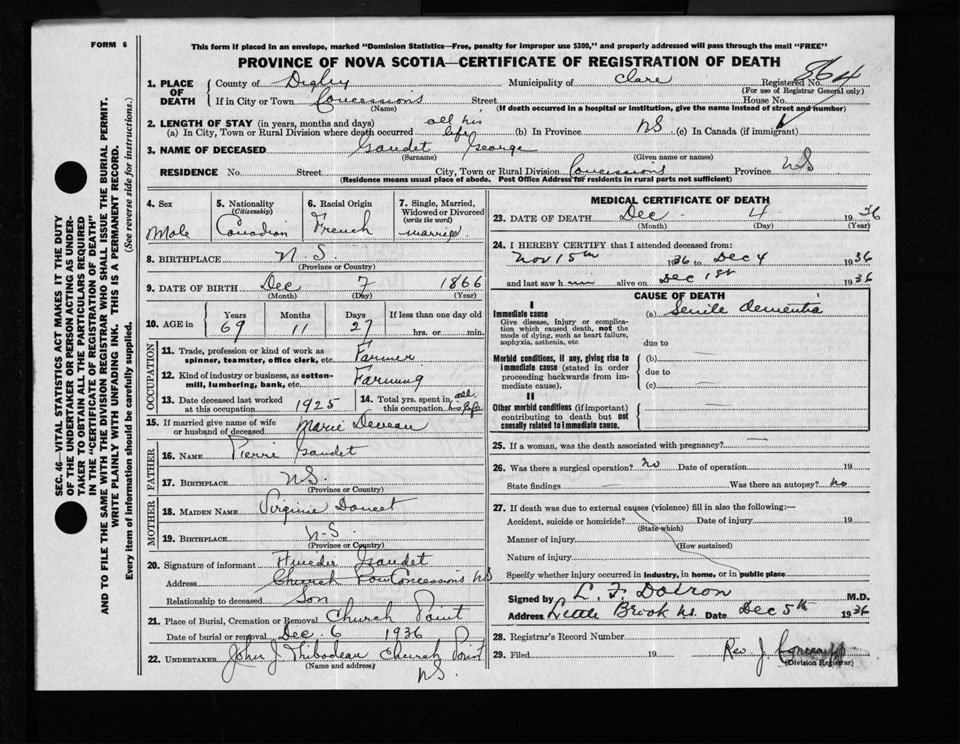 FORM 6
This form if placed in an envelope, marked "Dominion Statistics—Free, penalty for improper use $300," and properly addressed will pass through the mail "FREE"
PROVINCE OF NOVA SCOTIA—CERTIFICATE OF REGISTRATION OF DEATH
SEC. 46—VITAL STATISTICS ACT MAKES IT THE DUTY
OF THE UNDERTAKER OR PERSON ACTING AS UNDER-
TAKER TO OBTAIN ALL THE PARTICULARS REQUIRED
IN THE "CERTIFICATE OF REGISTRATION OF DEATH"
AND TO FILE THE SAME WITH THE DIVISION REGISTRAR WHO SHALL ISSUE THE BURIAL PERMIT.
WRITE PLAINLY WITH UNFADING INK. THIS IS A PERMANENT RECORD.
Every item of information should be carefully supplied. (See reverse side for instructions.)
1. PLACE OF DEATH County of Digby Municipality of Clare Registered No. 864
(For use of Registrar General only)
If in City or Town Concessions Street House No.
(Name) (If death occurred in a hospital or institution, give the name instead of street and number)
2. LENGTH OF STAY (in years, months and days)
(a) In City, Town or Rural Division where death occurred all his life (b) In Province NS (c) In Canada (if immigrant)
3. NAME OF DECEASED Gaudet George
(Surname) (Given name or names)
RESIDENCE No. Street City, Town or Rural Division Concessions Province NS
(Residence means usual place of abode. Post Office Address for residents in rural parts not sufficient)
4. Sex Male
5. Nationality (Citizenship) Canadian
6. Racial Origin French
7. Single, Married, Widowed or Divorced (write the word) married
8. BIRTHPLACE N.S.
(Province or Country)
9. DATE OF BIRTH Dec 7 1866
(Month) (Day) (Year)
10. AGE in Years 69 Months 11 Days 27 If less than one day old hrs. or min.
OCCUPATION
11. Trade, profession or kind of work as spinner, teamster, office clerk, etc. Farmer
12. Kind of industry or business, as cotton-mill, lumbering, bank, etc. Farming
13. Date deceased last worked at this occupation 1925
14. Total yrs. spent in this occupation all his life
15. If married give name of wife or husband of deceased Marie Deveau
FATHER
16. NAME Pierre Gaudet
17. BIRTHPLACE NS.
(Province or Country)
MOTHER
18. MAIDEN NAME Virginie Doucet
19. BIRTHPLACE N-S
(Province or Country)
20. Signature of informant Gaudet
Address Church Concessions NS
Relationship to deceased Son
21. Place of Burial, Cremation or Removal Church Point
Date of burial or removal Dec. 6 1936
22. UNDERTAKER John J Thibodeau Church Point
(Name and address) NS.
MEDICAL CERTIFICATE OF DEATH
23. DATE OF DEATH Dec. 4 1936
(Month) (Day) (Year)
24. I HEREBY CERTIFY that I attended deceased from:
Nov 15th 1936 to Dec 4 1936
and last saw him alive on Dec 1st 1936
CAUSE OF DEATH
I
Immediate cause (a) Senile dementia
Give disease, injury or complication which caused death, not the mode of dying, such as heart failure, asphyxia, asthenia, etc.
due to
Morbid conditions, if any, giving rise to immediate cause (stated in order proceeding backwards from immediate cause).
(b)
due to
(c)
II
Other morbid conditions (if important) contributing to death but not causally related to immediate cause.
25. If a woman, was the death associated with pregnancy?
26. Was there a surgical operation? no Date of operation 19
State findings Was there an autopsy? no
27. If death was due to external causes (violence) fill in also the following:—
Accident, suicide or homicide? Date of injury 19
(State which)
Manner of injury
(How sustained)
Nature of injury
Specify whether injury occurred in industry, in home, or in public place
Signed by L. F. Doiron M.D.
Address Little Brook NS. Date Dec 5th 1936
28. Registrar's Record Number
29. Filed 19 Rev J.
(Division Registrar)